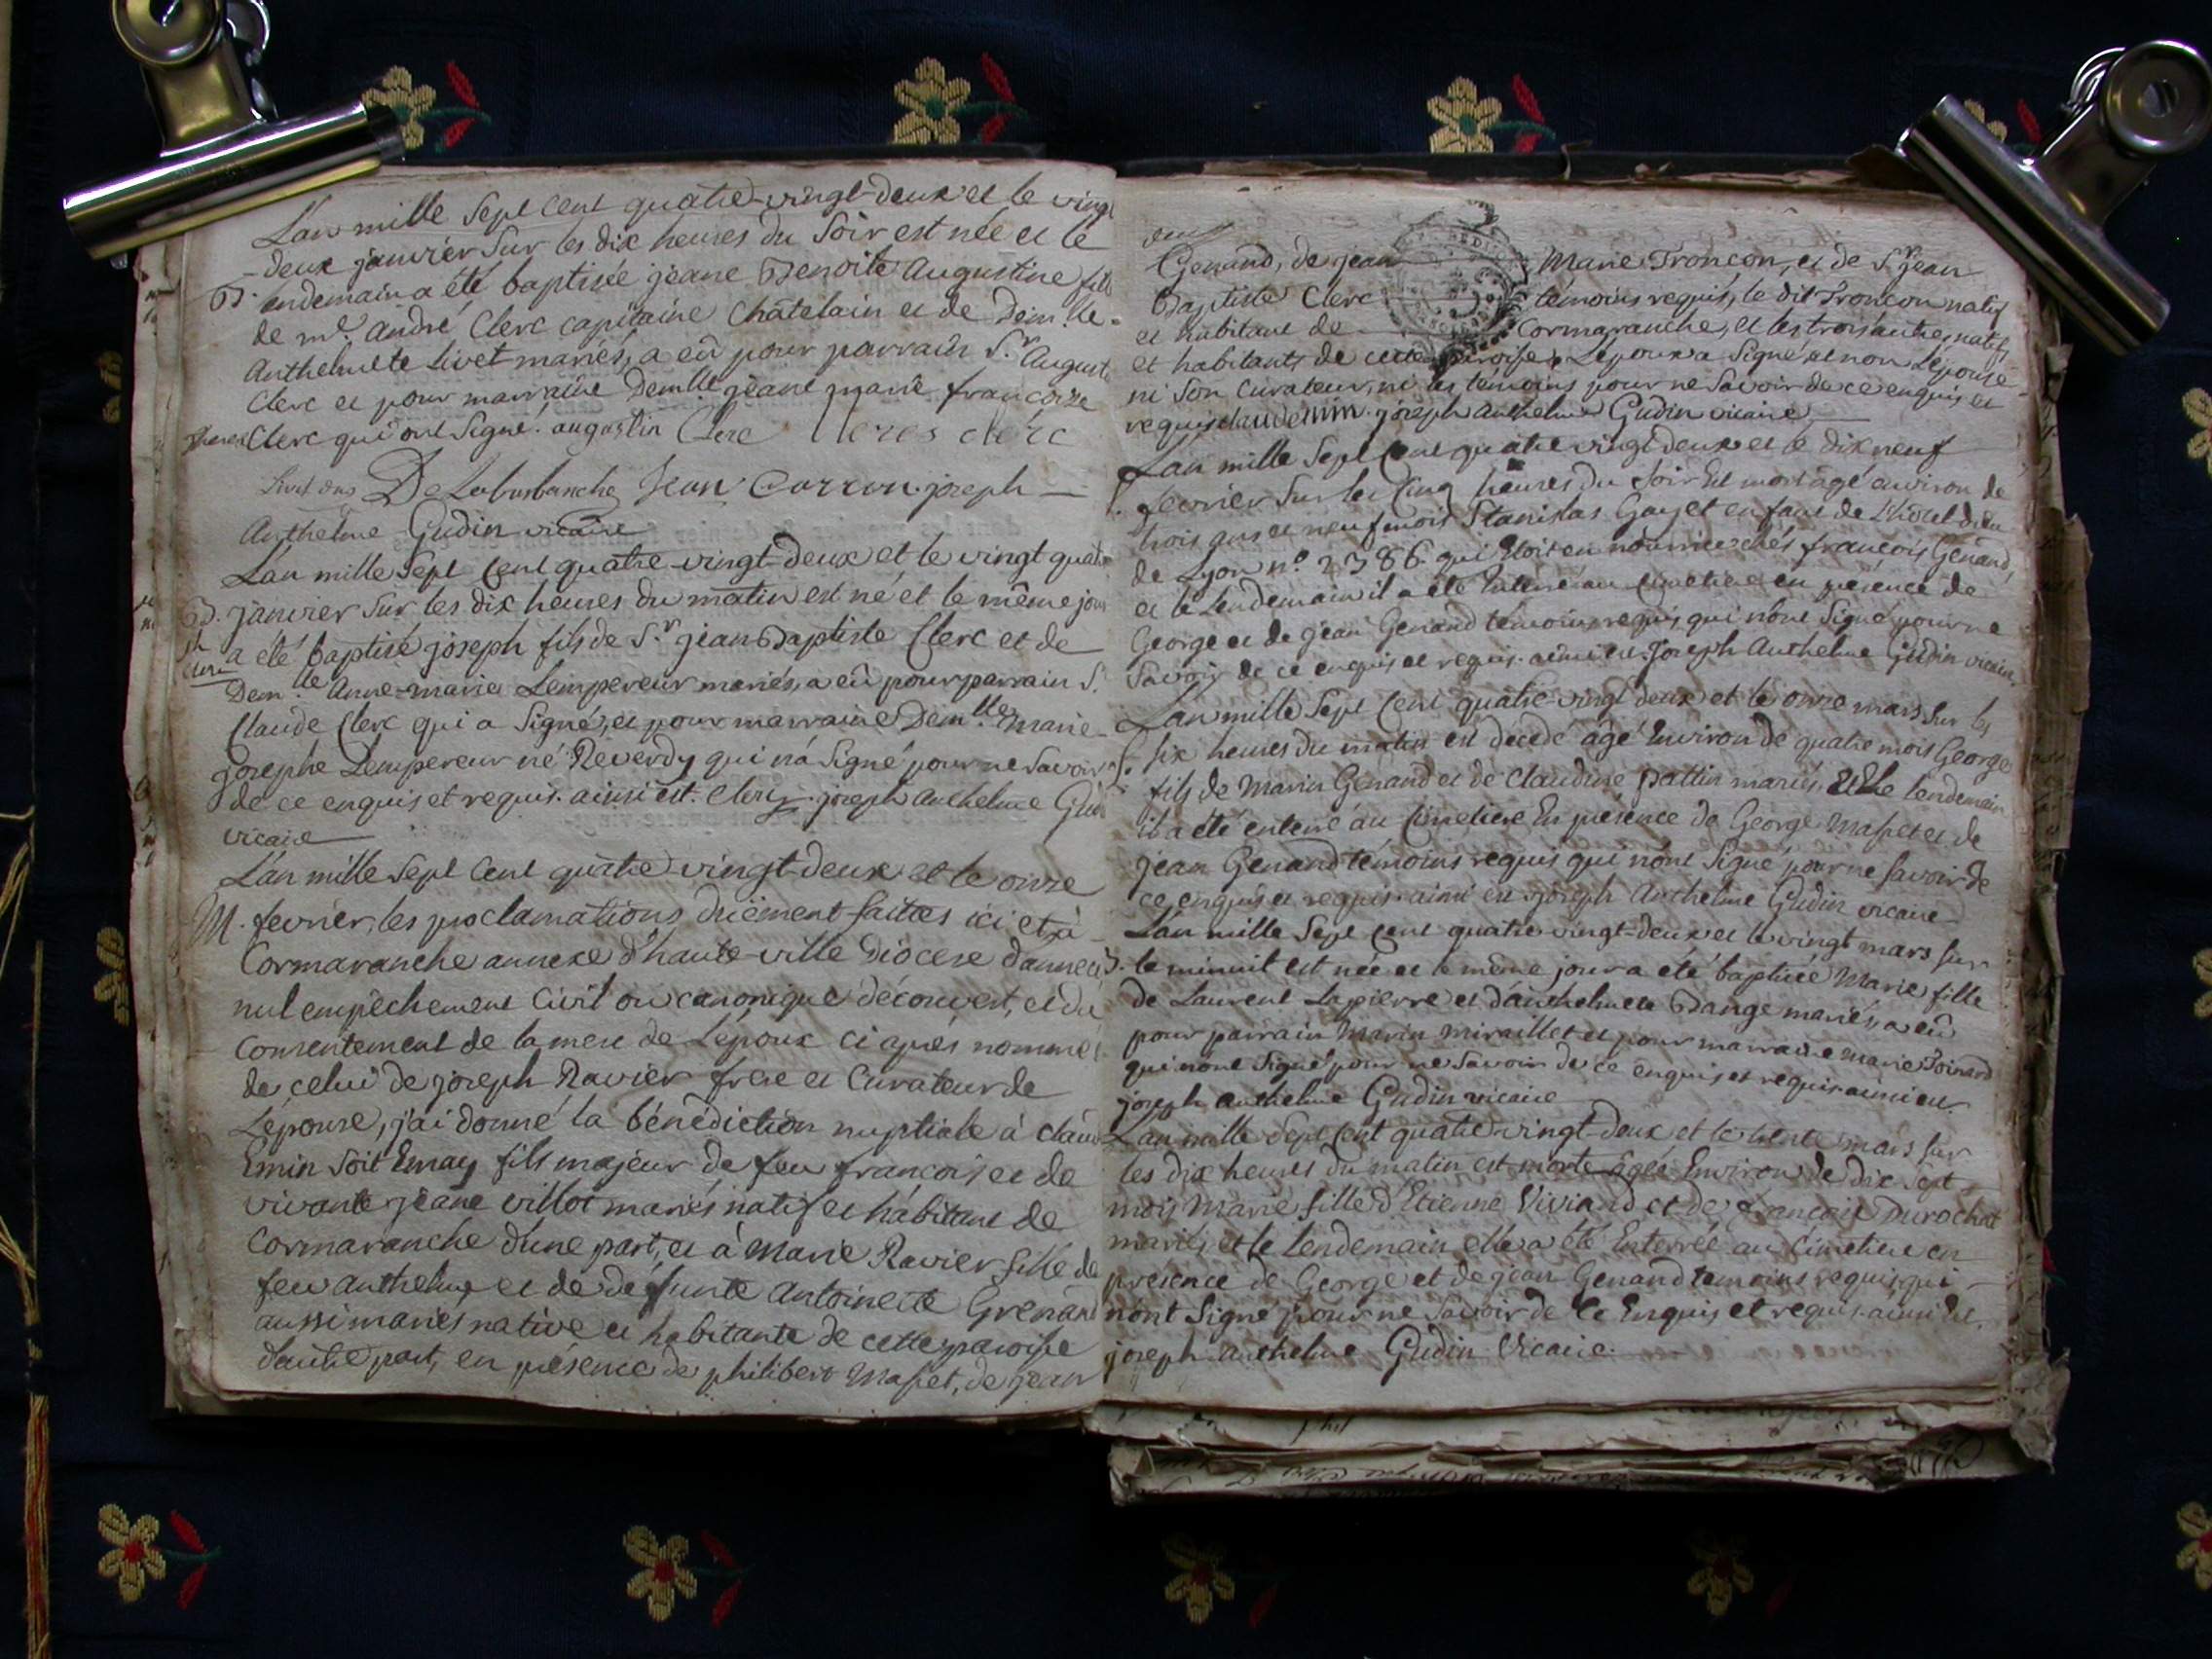 L'an mille Sept Cent quatre-vingt-deux et le vingt
-deux janvier Sur les dix heures du Soir est née et le
B. lendemain a été baptisée jeane Benoite Augustine fille
de mr. andré Clerc capitaine Châtelain et de Demlle.
Anthelmette Livet mariés, a eû pour parrain S.r August
Clerc et pour marraine Demlle. jeane marie francoise
Clerc qui ont Signé. augustin Clerc clerc
De Labarbanche Jean Carron. joseph —
Anthelme Gudin vicaire
L'an mille Sept Cent quatre-vingt-deux et le vingt quatre
B. janvier Sur les dix heures du matin est né et le même jour
a été baptisé joseph fils de S.r jean Baptiste Clerc et de
Dem.lle Anne-marie Lempereur mariés, a eû pour parrain S.
Claude Clerc qui a Signé, et pour marraine Dem.lle marie-
Josephe Lempereur né Reverdy qui n'a Signé pour ne Savoir
de ce enquis et requis. ainsi est. Clerc. joseph anthelme Gudin
vicaire
L'an mille Sept Cent quatre-vingt-deux et le onze
M. fevrier, les proclamations düement faites ici et à
Cormaranche annexe d'haute-ville Diocese danneci
nul empêchement Civil ou canonique découvert, et du
Consentement de la mere de L'époux ci après nommé
de celui de joseph Ravier frere et Curateur de
L'épouse, j'ai donné la bénédiction nuptiale à claude
Emin soit Emay fils majeur de feu francois et de
vivante jeane villot mariés natif et hâbitant de
Cormaranche d'une part, et à Marie Ravier fille de
feu anthelme et de défunte Antoinette Grenand
aussi mariés native et habitante de cette paroisse
d'autre part, en présence de philibert Masset, de jean
Genand, de jean Marie Troncon, et de S.r jean
Baptiste Clerc témoins requis, le dit Troncon natif
et habitant de Cormaranche, et les trois autres natifs
et habitants de cette paroisse, L'époux a Signé et non L'épouse
ni Son Curateur, ni les témoins pour ne Savoir de ce enquis et
requis claude emin. joseph anthelme Gudin vicaire
L'an mille Sept Cent quatre vingt-deux et le dix neuf
S. fevrier Sur les Cinq heures du Soir Est mort agé environ de
trois ans et neuf mois Stanislas Gayet enfant de L'hôtel dieu
de Lyon n.o 2386. qui étoit en nourrice chés francois Genand,
et le Lendemain il a été Enterré au Cimetiere en présence de
George et de jean Genand témoins requis, qui n'ont Signé pour ne
Savoir de ce enquis et requis. ainsi est. Joseph Anthelme Gudin vicaire.
L'an mille Sept Cent quatre-vingt deux et le onze mars Sur les
S. Six heures du matin est décédé agé Environ de quatre mois George
fils de Marin Genand et de Claudine Pattin mariés, et le lendemain
il a été enterré au Cimetiere En présence de George Masset et de
jean Genand témoins requis qui n'ont Signé pour ne Savoir de
ce enquis et requis. ainsi est. joseph Anthelme Gudin vicaire
L'an mille Sept Cent quatre vingt-deux et le vingt mars Sur
B. le minuit est née et le même jour a été baptisée Marie fille
de Laurent Lapierre et d'anthelmette Bange mariés, a eû
pour parrain Marin miraillet et pour marraine marie Poinard
qui n'ont Signé pour ne Savoir de ce enquis et requis. ainsi est.
joseph anthelme Gudin vicaire
L'an mille Sept Cent quatre-vingt-deux et le trente mars Sur
les dix heures du matin est morte agée Environ de dix Sept
mois Marie fille d'Etienne Viviand et de francoise Durochat
mariés, et le Lendemain elle a été Enterrée au Cimetiere en
presence de George et de jean Genand temoins requis, qui
n'ont Signé pour ne Savoir de Ce Enquis et requis. ainsi est.
joseph anthelme Gudin Vicaire.